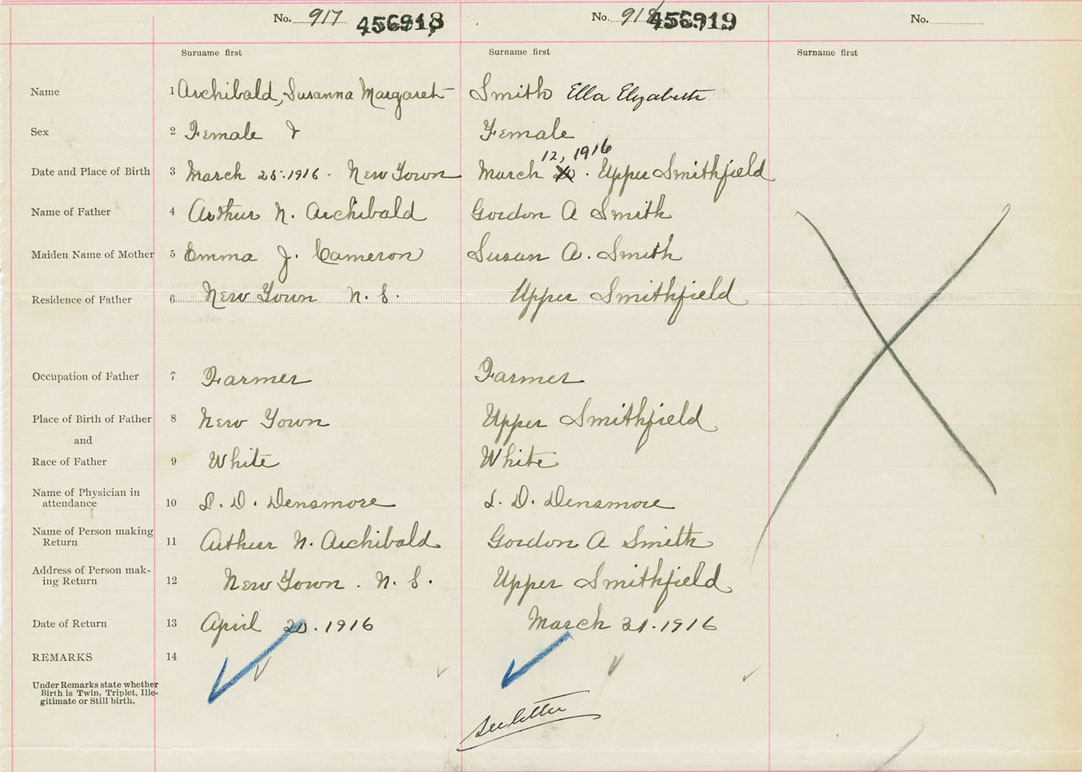 No. 917 456918 No. 918 456919 No.
Surname first Surname first Surname first
Name 1 Archibald, Susanna Margaret Smith Ella Elizabeth
Sex 2 Female Female
12, 1916
Date and Place of Birth 3 March 25.1916 - New Town March . Upper Smithfield
Name of Father 4 Arthur N. Archibald Gordon A Smith
Maiden Name of Mother 5 Emma J. Cameron Susan A. Smith
Residence of Father 6 New Town N. S. Upper Smithfield
Occupation of Father 7 Farmer Farmer
Place of Birth of Father 8 New Town Upper Smithfield
and
Race of Father 9 White White
Name of Physician in
attendance 10 D. Densmore D. Densmore
Name of Person making
Return 11 Arthur N. Archibald Gordon A Smith
Address of Person mak-
ing Return 12 New Town. N. S. Upper Smithfield
Date of Return 13 April 20.1916 March 21.1916
REMARKS 14
Under Remarks state whether
Birth is Twin, Triplet, Ille-
gitimate or Still birth.
see letter